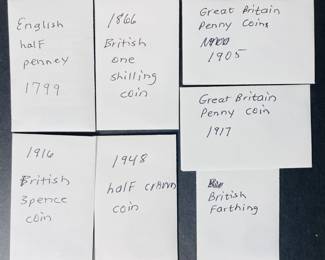 English
half
penney
1799
1866
British
one
shilling
coin
Great Britain
Penny Coins
1905
Great Britain
Penny coin
1917
1916
British
3pence
coin
1948
half crown
coin
British
Farthing